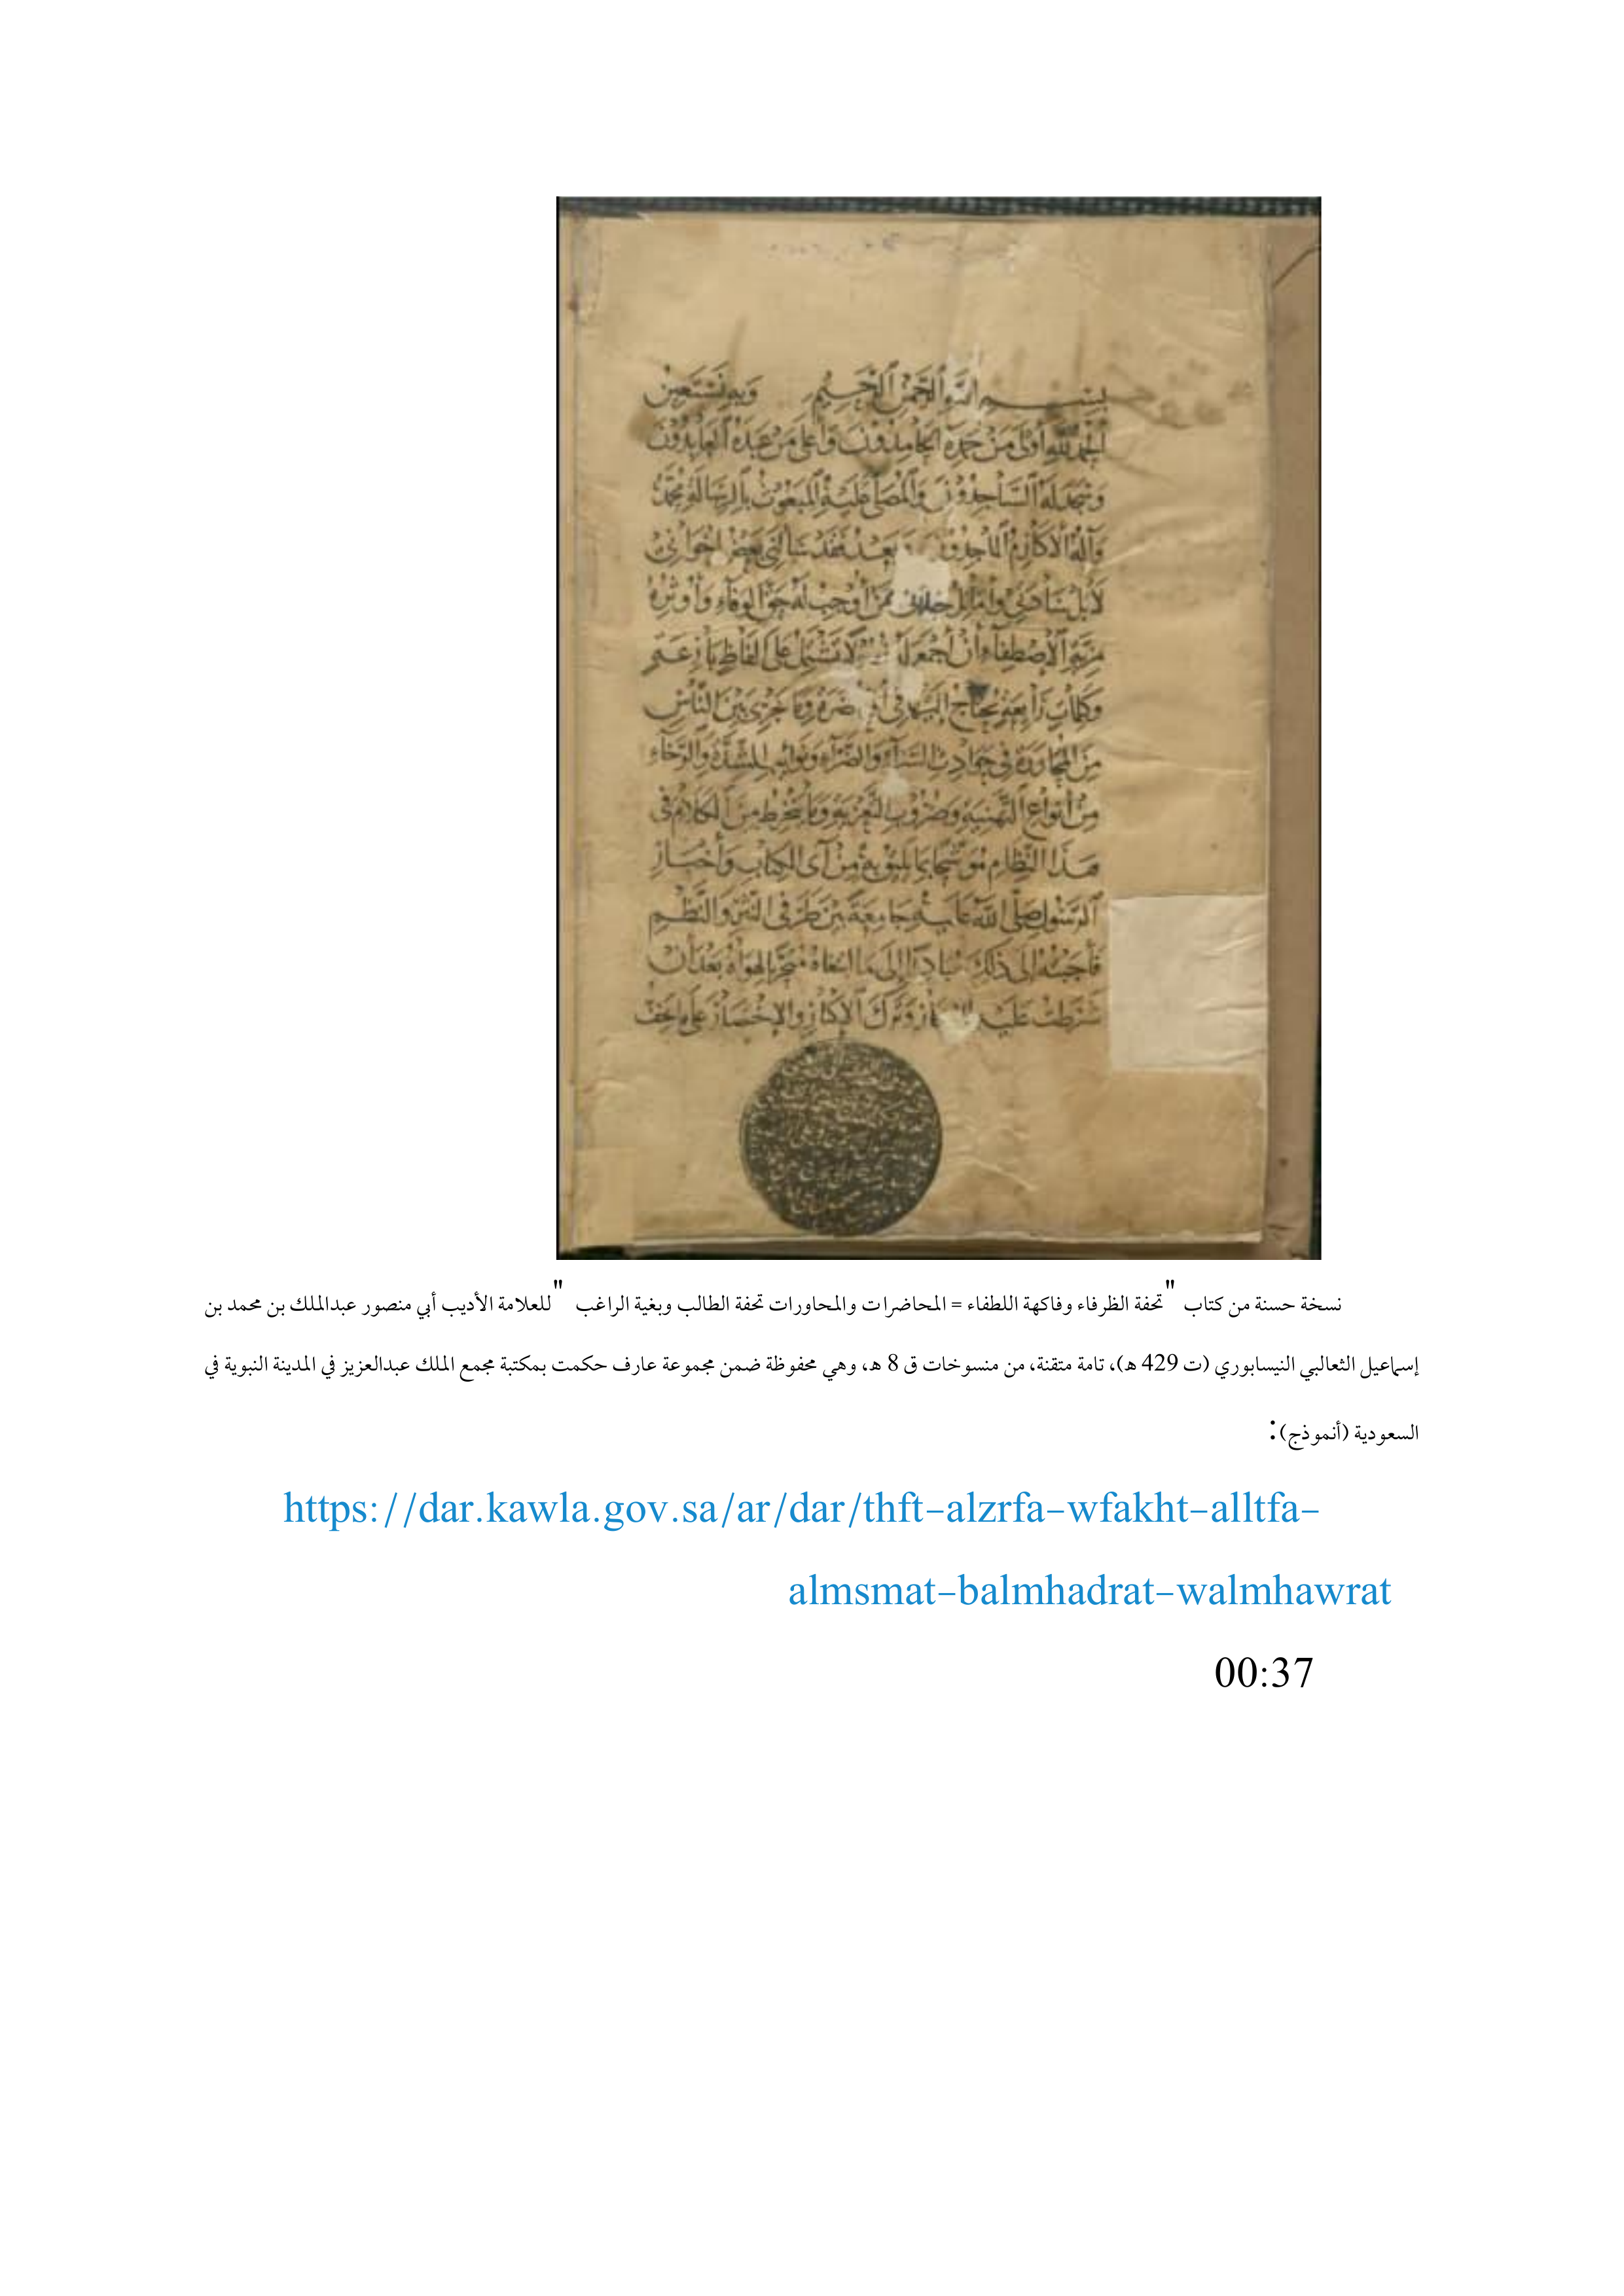 بسم الله الرحمن الرحيم وبه نستعين
الحمد لله أولى من حمده الحامدون وأعلى من عبده العابدون
وسجد له الساجدون والمصلى عليه المبعوث بالرسالة محمد
وآله الأكارم وبعد فقد سألني بعض إخواني
ممن أوجب له حق الوفاء وأوثره
مزية الأصطفاء أن أجمع تشتمل على ألفاظ
وكلمات رائعة يحتاج إليها في وما جرى بين الناس
من المحاورة في حوادث السراء والضراء ونوائب الشدة والرخاء
من أنواع التهنية وضروب التعزية وما ينخرط من الكلام في
هذا النظام موشحا بما يليق به من آي الكتاب وأخبار
الرسول صلى الله عليه جامعة بين طرفي النثر والنظم
فأجبته إلى ذلك إلى ما لهواه بعد أن
شرطت عليه وترك الإكثار والإختصار على
نسخة حسنة من كتاب "تحفة الظرفاء وفاكهة اللطفاء = المحاضرات والمحاورات تحفة الطالب وبغية الراغب "للعلامة الأديب أبي منصور عبدالملك بن محمد بن
إسماعيل الثعالبي النيسابوري (ت 429 هـ)، تامة متقنة، من منسوخات ق 8 هـ، وهي محفوظة ضمن مجموعة عارف حكمت بمكتبة مجمع الملك عبدالعزيز في المدينة النبوية في
السعودية (أنموذج):
https://dar.kawla.gov.sa/ar/dar/thft-alzrfa-wfakht-alltfa-
almsmat-balmhadrat-walmhawrat
00:37